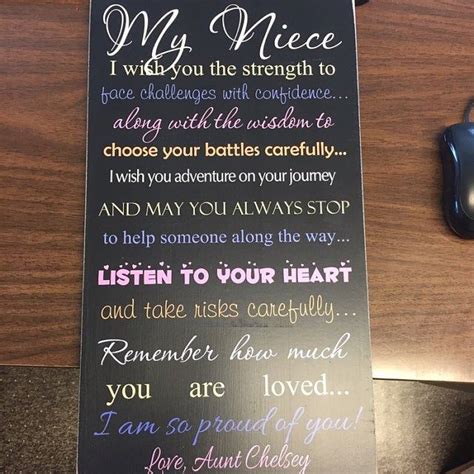 My Niece
I wish you the strength to
face challenges with confidence...
along with the wisdom to
choose your battles carefully...
I wish you adventure on your journey
AND MAY YOU ALWAYS STOP
to help someone along the way...
LISTEN TO YOUR HEART
and take risks carefully...
Remember how much
you are loved...
I am so proud of you!
Love, Aunt Chelsey